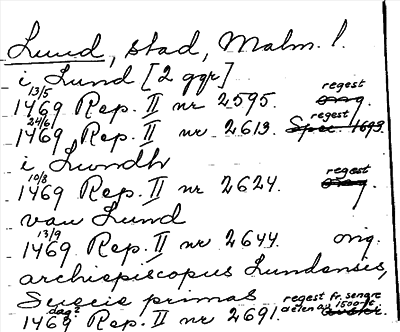 Lund, stad, Malm. l.
i Lund [2 ggr]
13/5 regest
1469 Rep. II nr 2595. orig.
24/6 regest
1469 Rep. II nr 2613. Spec. 1693
i Lundh
10/8 regest
1469 Rep. II nr 2624. orig.
van Lund
13/9
1469 Rep. II nr 2644. orig.
archiepiscopus Lundensis,
Suecie primas regest fr. senare
dag? delen av 1500-t.
1469 Rep. II nr 2691.